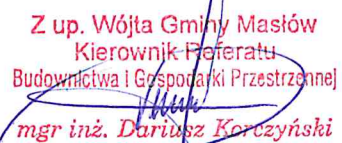 Z up. Wójta Gminy Masłów
Kierownik Referatu
Budownictwa i Gospodarki Przestrzennej
mgr inż. Dariusz Korczyński